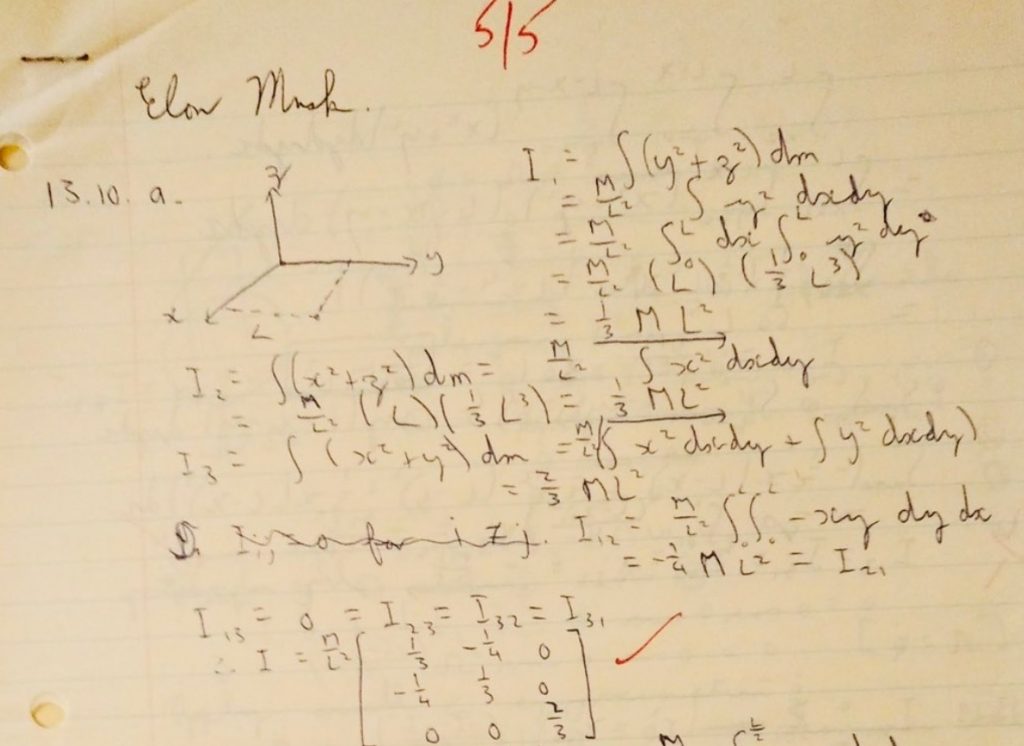 5/5
Elon Musk.
13.10. a.
z
y
x
L
I₁ = ∫(y² + z²) dm
= M/L² ∫ y² dxdy
= M/L² ∫₀ᴸ dx ∫₀ᴸ y² dy
= M/L² (L) (1/3 L³)
= 1/3 M L²
I₂ = ∫(x² + z²) dm = M/L² ∫ x² dxdy
= M/L² (L)(1/3 L³) = 1/3 ML²
I₃ = ∫ (x² + y²) dm = M/L² (∫ x² dxdy + ∫ y² dxdy)
= 2/3 ML²
I₁₂ = M/L² ∫₀ᴸ ∫₀ᴸ -xy dy dx
= -1/4 M L² = I₂₁
I₁₃ = 0 = I₂₃ = I₃₂ = I₃₁
∴ I = M/L² [ 1/3 -1/4 0
-1/4 1/3 0
0 0 2/3 ]